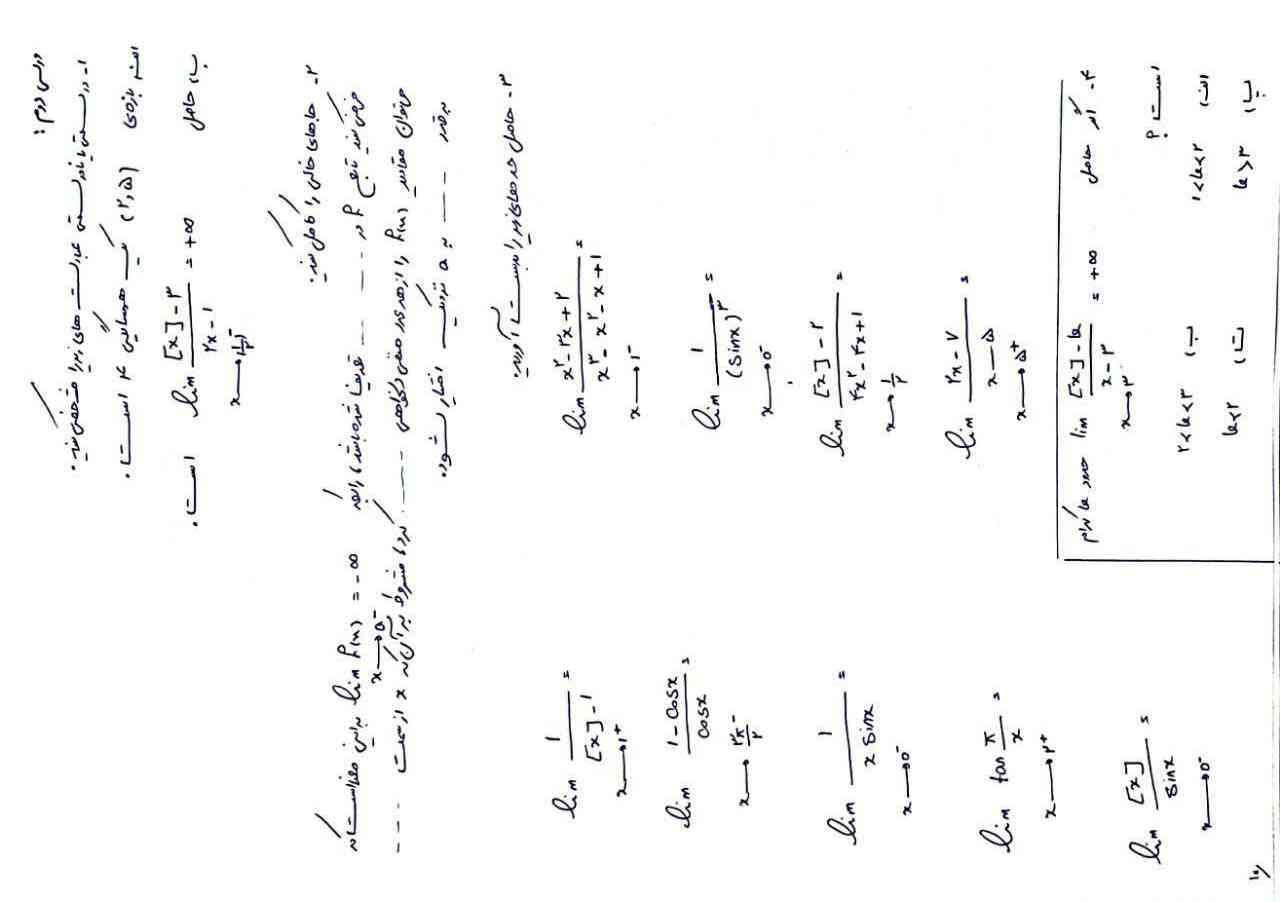 درس دوم :
۱- درستی یا نادرستی عبارت های زیر را مشخص کنید.
الف) بازه‌ی (۲,۵) یک همسایگی ۴ است.
ب) حاصل lim x→½⁻ [x]-۳ / ۲x-۱ = +∞ است.
۲- جاهای خالی را کامل کنید.
فرض کنید تابع f در ---- تعریف شده باشد، lim x→a⁻ f(x) = -∞ بدین معناست که
می‌توان مقادیر f(x) را از هر عدد منفی دلخواهی ---- کرد، مشروط بر آن‌که x از سمت ----
به قدر ---- به a نزدیک اختیار شود.
۳- حاصل حدهای زیر را بدست آورید.
lim x→۱⁻ x²-۳x+۲ / x³-x²-x+۱ =
lim x→۱⁺ ۱ / [x]-۱ =
lim x→۰⁻ ۱ / (sinx)³ =
lim x→۳π/۲⁻ ۱-cosx / cosx =
lim x→½ [x]-۲ / ۴x²-۴x+۱ =
lim x→۰⁻ ۱ / x sinx =
lim x→۵⁺ ۲x-۷ / x-۵ =
lim x→۲⁺ tan π/x =
lim x→۰⁻ [x] / sinx =
۴- اگر حاصل lim x→۳⁻ [x]-k / x-۳ = +∞ حدود k کدام
است ؟
الف) ۱<k<۲
ب) ۲<k<۳
پ) k>۳
ت) k>۲